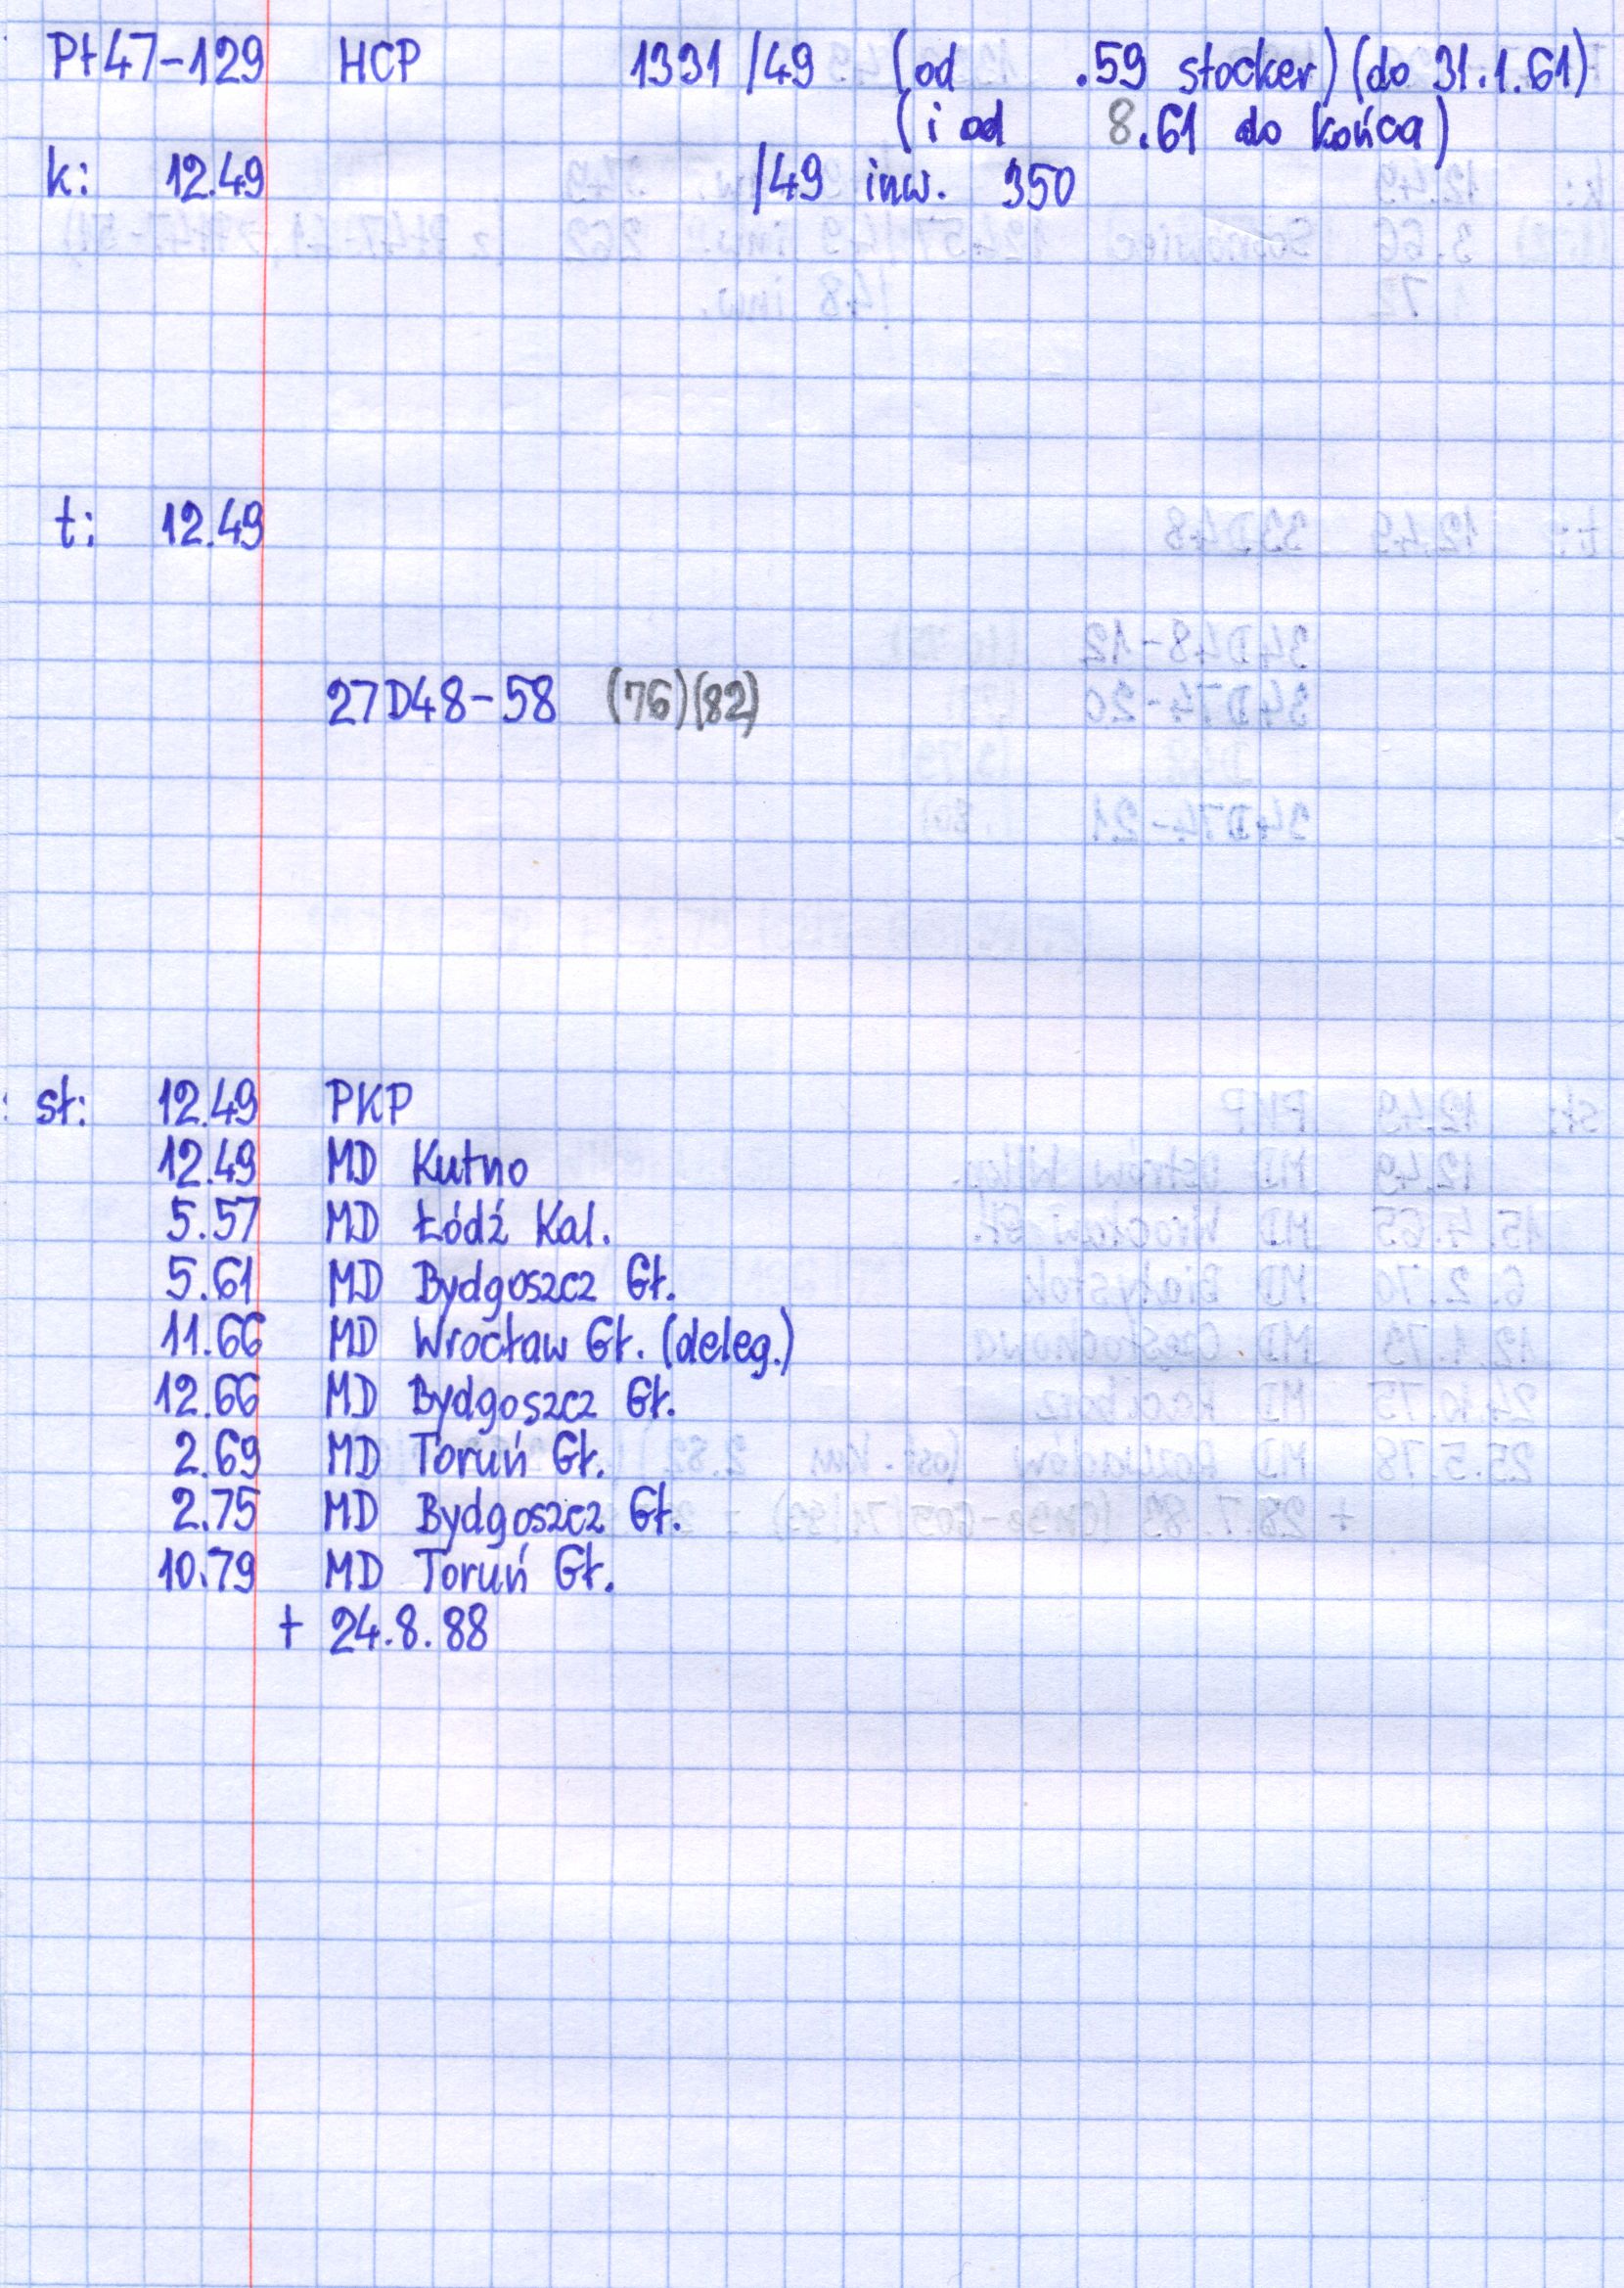 Pt47-129 HCP 1331/49 (od .59 stocker) (do 31.1.61)
(i od 8.61 do końca)
k: 12.49 /49 inw. 350
t: 12.49
27D48-58 (76)(82)
st: 12.49 PKP
12.49 MD Kutno
5.57 MD Łódź Kal.
5.61 MD Bydgoszcz Gł.
11.66 MD Wrocław Gł. (deleg.)
12.66 MD Bydgoszcz Gł.
2.69 MD Toruń Gł.
2.75 MD Bydgoszcz Gł.
10.79 MD Toruń Gł.
+ 24.8.88